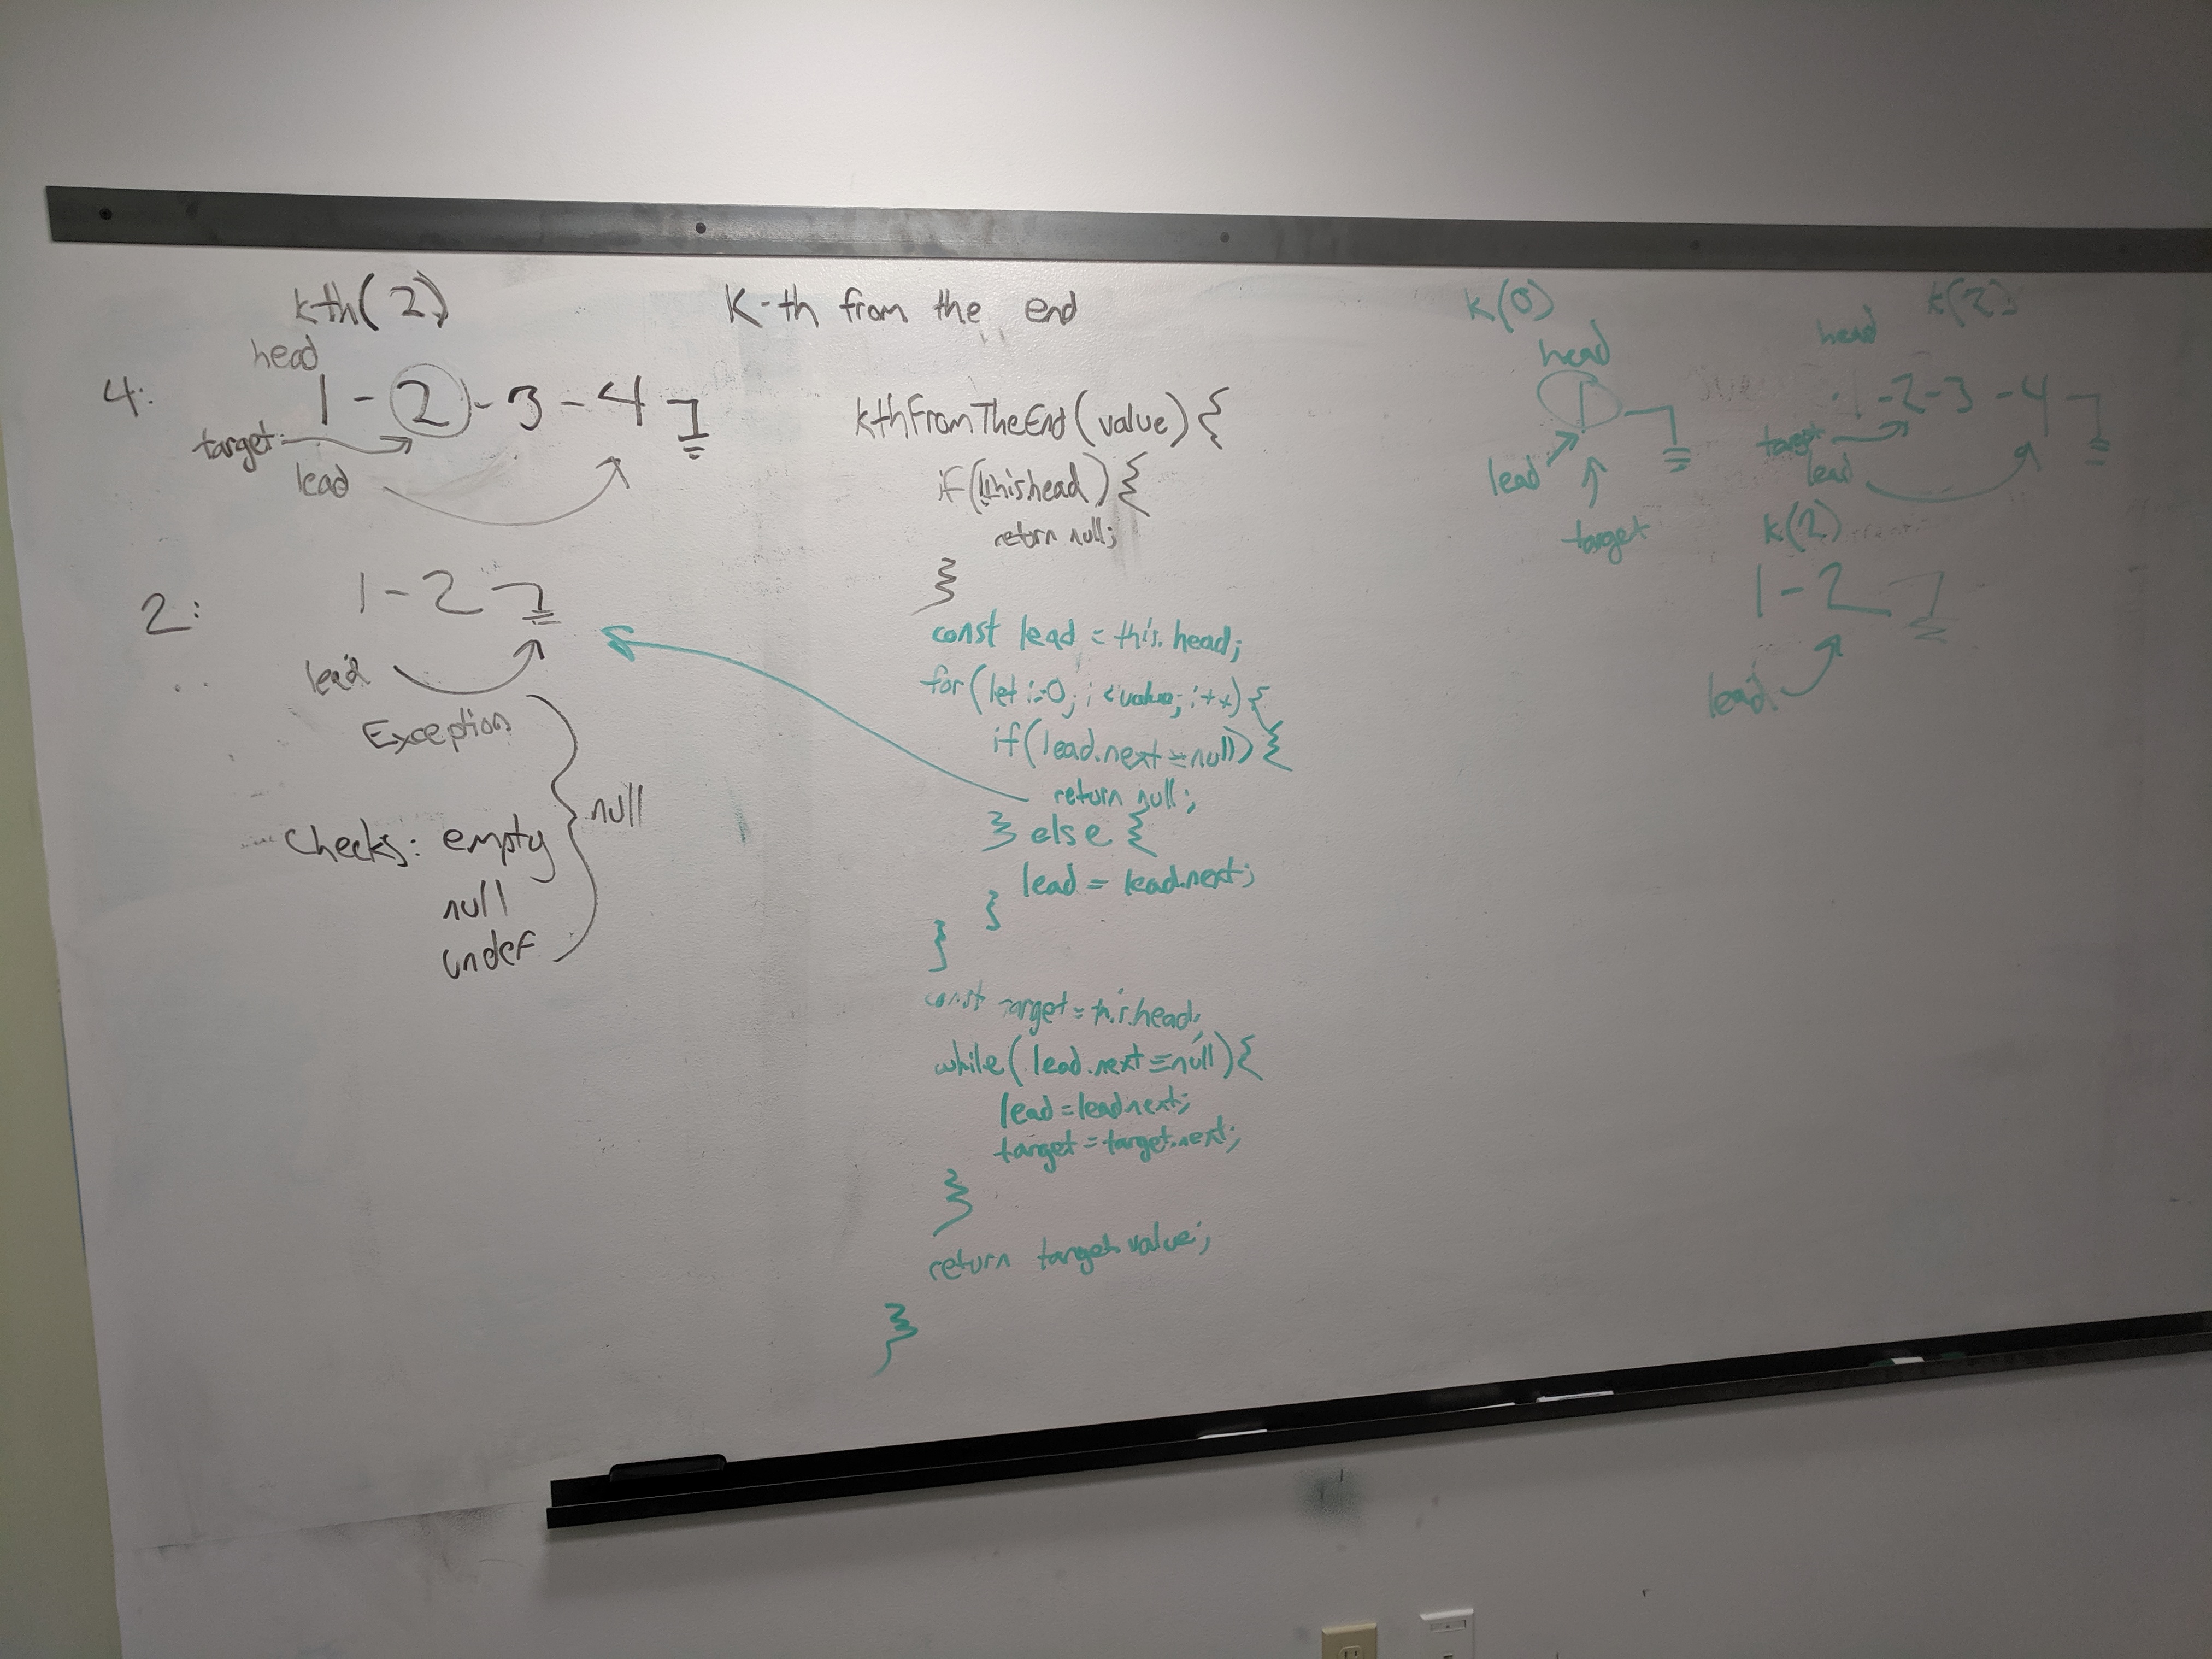 kth(2)
head
4: 1 - 2 - 3 - 4
target
lead
2: 1 - 2
lead
Exception
Checks: empty
null
undef
null
K-th from the end
kthFromTheEnd(value) {
if(!this.head) {
return null;
}
const lead = this.head;
for(let i=0; i < value; i++) {
if(lead.next == null) {
return null;
} else {
lead = lead.next;
}
}
const target = this.head;
while(lead.next == null) {
lead = lead.next;
target = target.next;
}
return target.value;
}
k(0)
head
1
lead
target
k(2)
head
1 - 2 - 3 - 4
target
lead
k(2)
1 - 2
lead